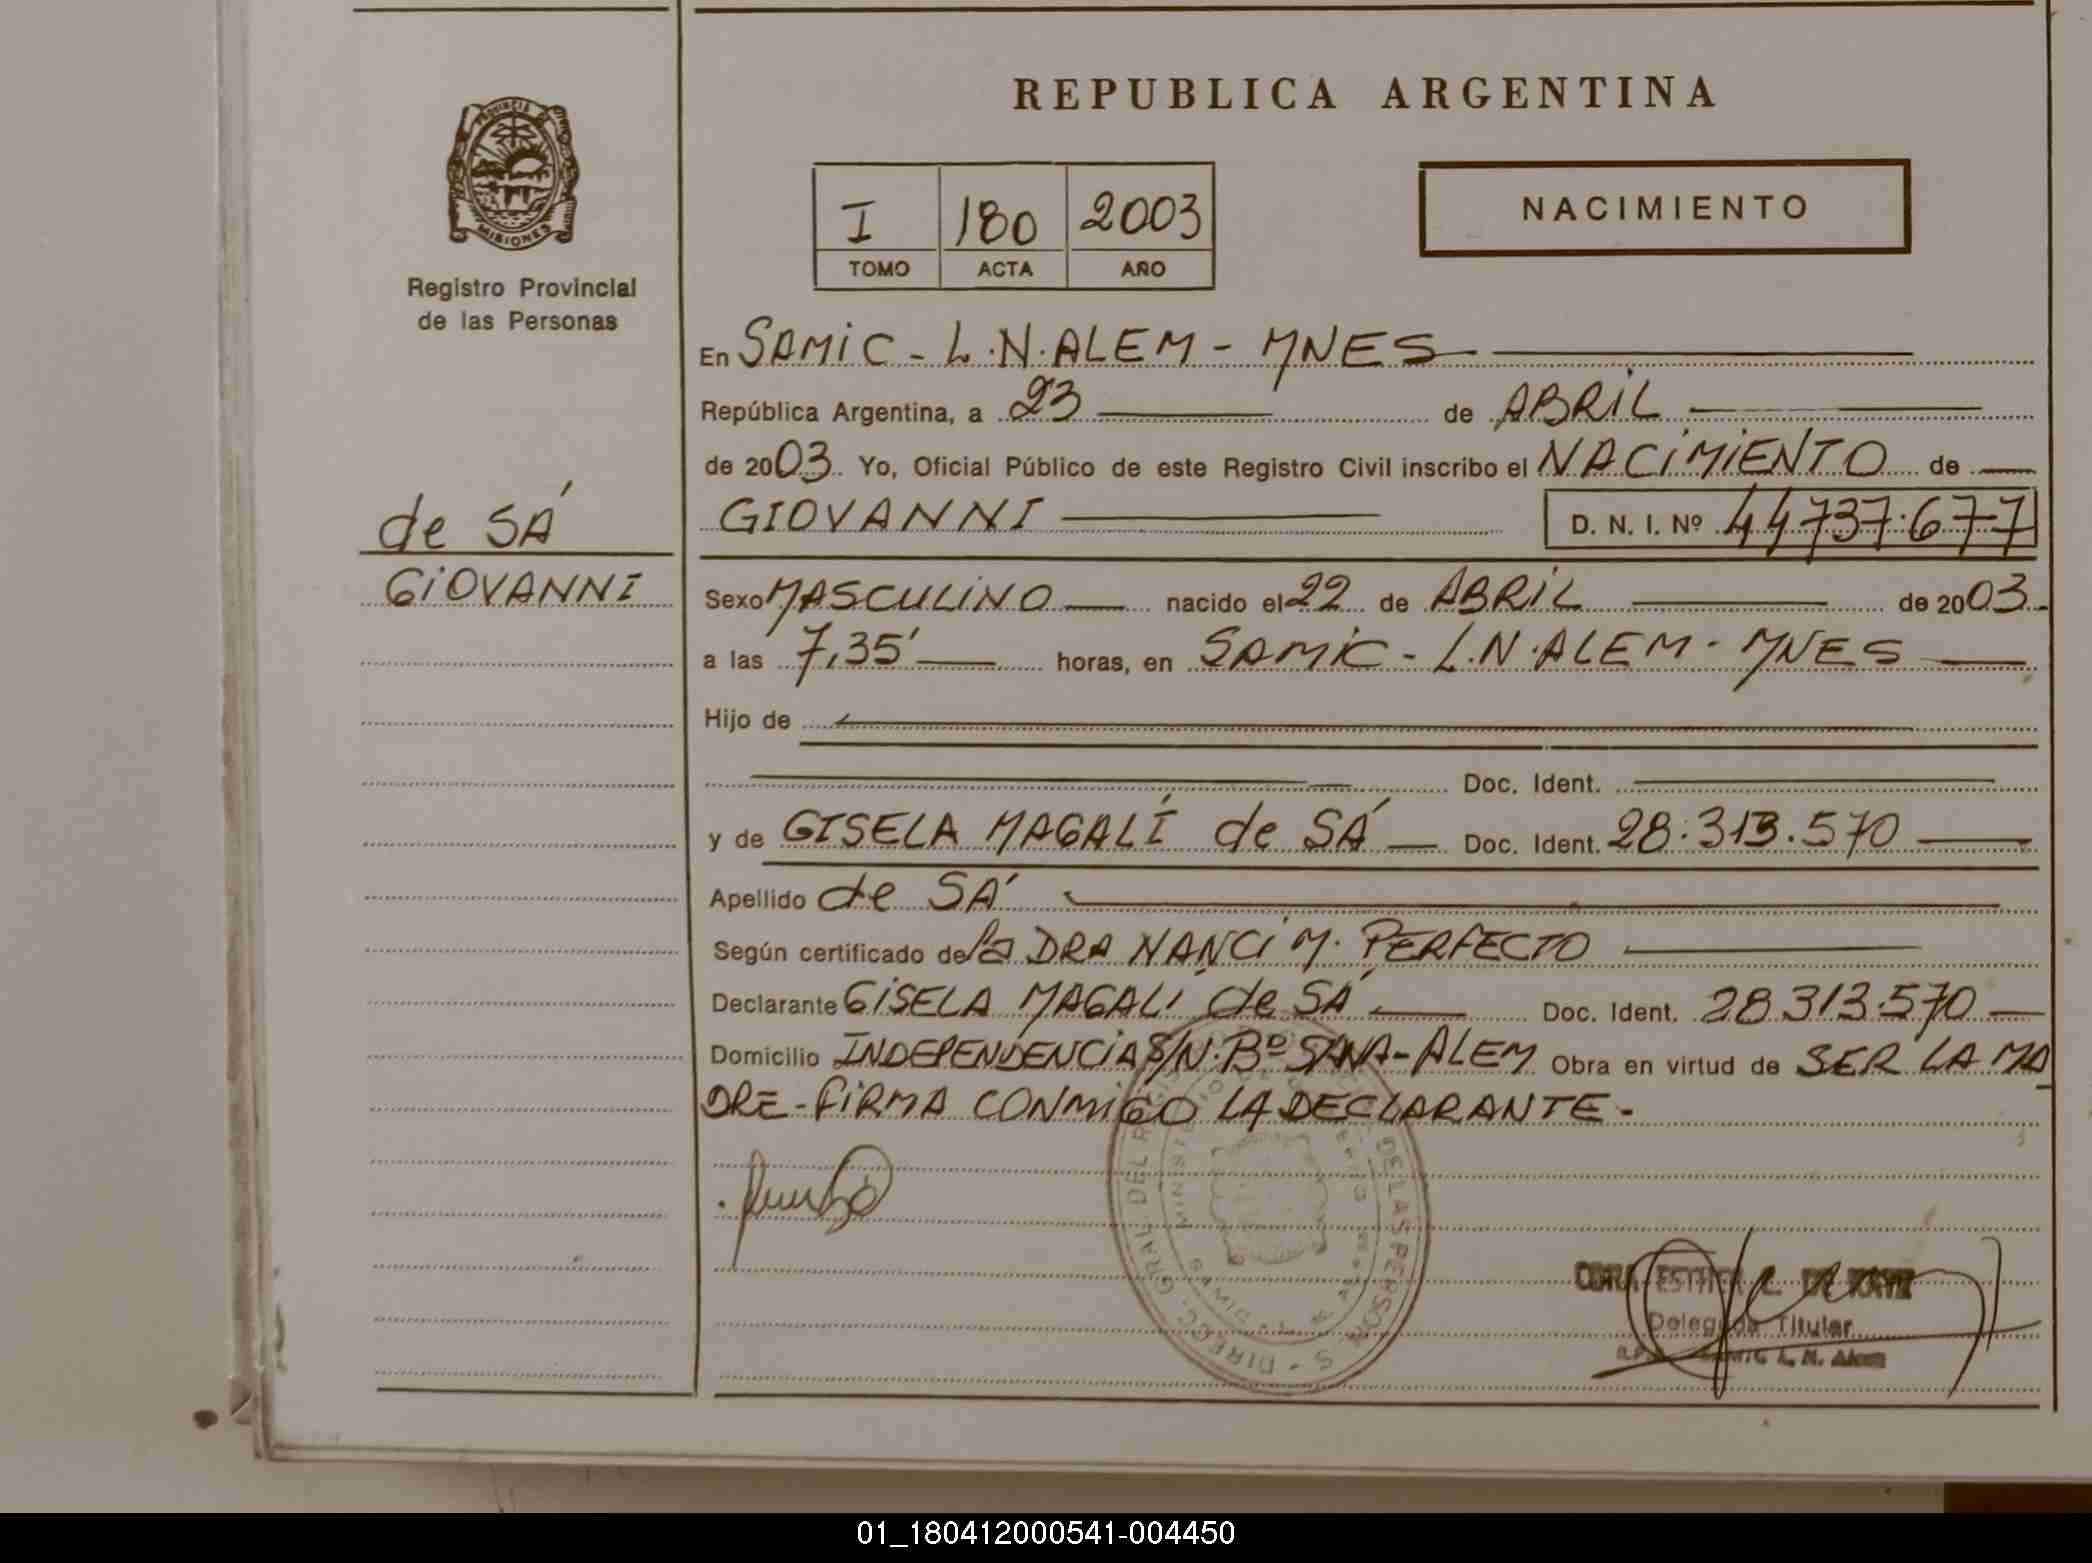 REPUBLICA ARGENTINA
PROVINCIA DE MISIONES
Registro Provincial
de las Personas
I 180 2003
TOMO ACTA AÑO
NACIMIENTO
de SÁ
GIOVANNI
En SAMIC - L.N.ALEM - MNES
República Argentina, a 23 de ABRIL
de 2003. Yo, Oficial Público de este Registro Civil inscribo el NACIMIENTO de
GIOVANNI D. N. I. Nº 44737.677
Sexo MASCULINO nacido el 22 de ABRIL de 2003.
a las 7,35' horas, en SAMIC - L.N.ALEM - MNES
Hijo de
Doc. Ident.
y de GISELA MAGALÍ de SÁ Doc. Ident. 28.313.570
Apellido de SÁ
Según certificado de la DRA NANCI M. PERFECTO
Declarante GISELA MAGALI de SÁ Doc. Ident. 28.313.570
Domicilio INDEPENDENCIA S/N. Bº SANA-ALEM Obra en virtud de SER LA MA
DRE - FIRMA CONMIGO LA DECLARANTE -
ESTHER
Delegada Titular
L. N. Alem
01_180412000541-004450